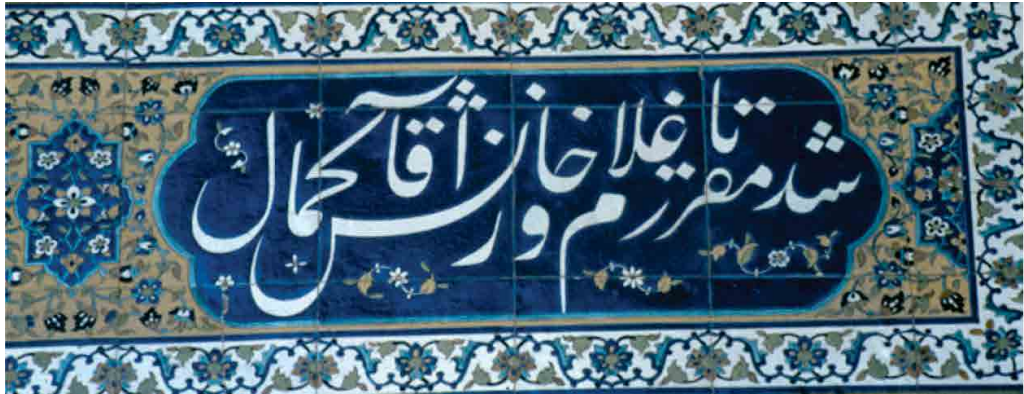 شد مقرر تا غلام خان وارثش آقا کمال